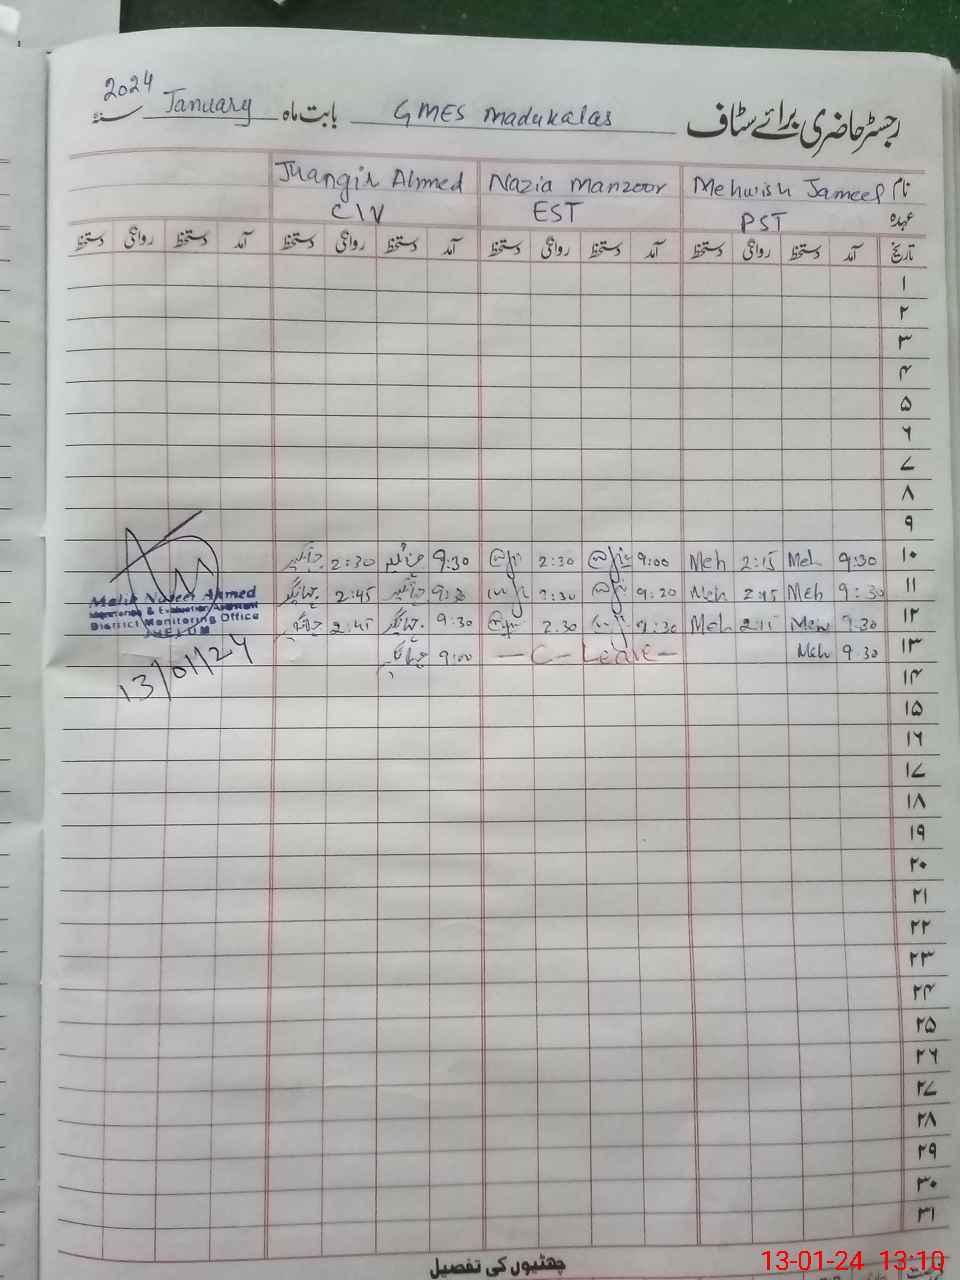 رجسٹر حاضری برائے سٹاف GMES Madukalas بابت ماہ January سنہ 2024
نام Mehwish Jameel Nazia Manzoor Jhangir Ahmed
عہدہ PST EST C/V
تاریخ آمد دستخط روانگی دستخط آمد دستخط روانگی دستخط آمد دستخط روانگی دستخط آمد دستخط روانگی دستخط
۱
۲
۳
۴
۵
۶
۷
۸
۹
۱۰ 9:30 Meh 2:15 Meh 9:00 2:30 9:30 جہانگیر 2:30 جہانگیر
۱۱ 9:30 Meh 2:45 Meh 9:20 2:30 9:30 جہانگیر 2:45 جہانگیر
۱۲ 9.30 Meh 2:15 Meh 9:30 2.30 9:30 جہانگیر 2:45 جہانگیر
۱۳ 9.30 Meh — C — Leave — 9:00 جہانگیر
۱۴
۱۵
۱۶
۱۷
۱۸
۱۹
۲۰
۲۱
۲۲
۲۳
۲۴
۲۵
۲۶
۲۷
۲۸
۲۹
۳۰
۳۱
Malik Naseer Ahmed
Monitoring & Evaluation Assistant
District Monitoring Office
JHELUM
13/01/24
چھٹیوں کی تفصیل
13-01-24 13:10